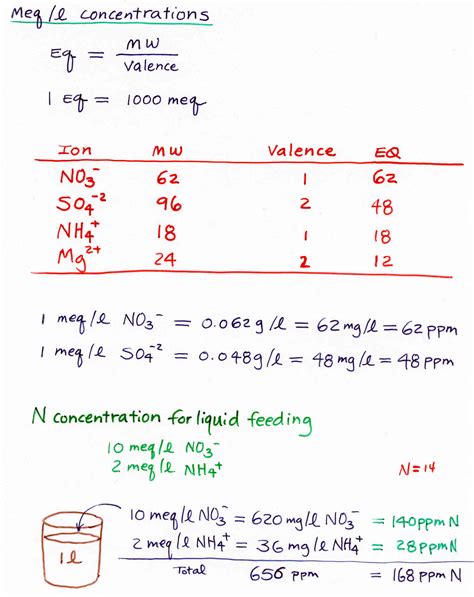 Meq/l concentrations
Eq = MW / Valence
1 Eq = 1000 meq
Ion MW Valence EQ
NO3⁻ 62 1 62
SO4⁻² 96 2 48
NH4⁺ 18 1 18
Mg²⁺ 24 2 12
1 meq/l NO3⁻ = 0.062g/l = 62mg/l = 62ppm
1 meq/l SO4⁻² = 0.048g/l = 48mg/l = 48ppm
N concentration for liquid feeding
10 meq/l NO3⁻
2 meq/l NH4⁺
N=14
10 meq/l NO3⁻ = 620mg/l NO3⁻ = 140ppm N
2 meq/l NH4⁺ = 36mg/l NH4⁺ = 28ppm N
Total 656 ppm = 168 ppm N
1l